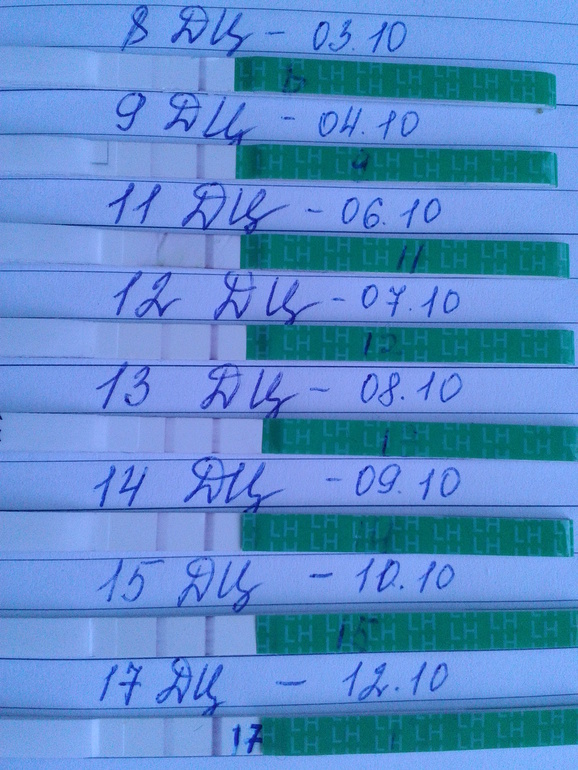 8 ДЦ - 03.10
LH LH LH LH LH LH
9 ДЦ - 04.10
LH LH LH LH LH LH
11 ДЦ - 06.10
LH LH LH LH 11 LH LH
12 ДЦ - 07.10
LH LH LH 12 LH LH LH
13 ДЦ - 08.10
LH LH LH LH LH LH
14 ДЦ - 09.10
LH LH LH 14 LH LH LH
15 ДЦ - 10.10
LH LH 15 LH LH LH LH
17 ДЦ - 12.10
17 LH LH LH LH LH LH